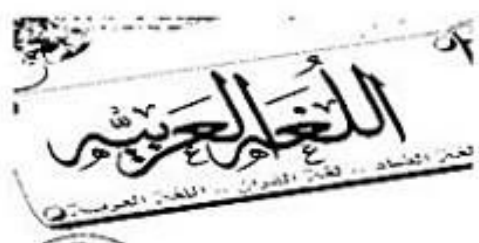 اللُغه العربيّه
لغة الضاد .. لغة القرآن .. اللغة العربية